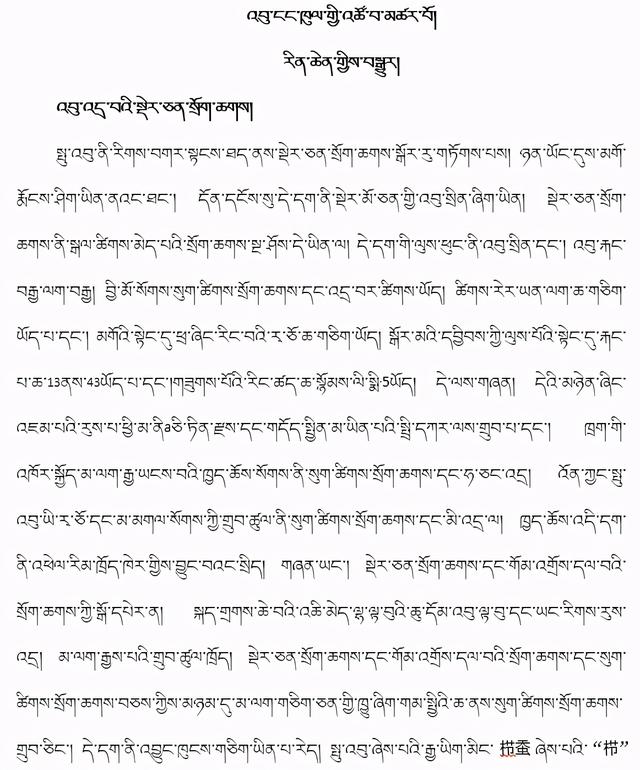 འབུ་ངང་ཁུལ་གྱི་འཚོ་བ་མཚར་པོ།
རིན་ཆེན་གྱིས་བསྒྱུར།
འབུ་འདྲ་བའི་སྡེར་ཅན་སྲོག་ཆགས།
སྤུ་འབུ་ནི་རིགས་བགར་སྟངས་ཐད་ནས་སྡེར་ཅན་སྲོག་ཆགས་སྐོར་རུ་གཏོགས་པས། ཉན་ཡོང་དུས་མགོ་
རྨོངས་ཤིག་ཡིན་ནའང་ཐང་། དོན་དངོས་སུ་དེ་དག་ནི་སྡེར་མོ་ཅན་གྱི་འབུ་སྲིན་ཞིག་ཡིན། སྡེར་ཅན་སྲོག་
ཆགས་ནི་སྒལ་ཚིགས་མེད་པའི་སྲོག་ཆགས་སྔ་ཤོས་དེ་ཡིན་ལ། དེ་དག་གི་ལུས་ཕུང་ནི་འབུ་སྲིན་དང་། འབུ་རྐང་
བརྒྱ་ལག་བརྒྱ། བྱི་མོ་སོགས་སུག་ཚིགས་སྲོག་ཆགས་དང་འདྲ་བར་ཚིགས་ཡོད། ཚིགས་རེར་ཡན་ལག་ཆ་གཅིག་
ཡོད་པ་དང་། མགོའི་སྟེང་དུ་ཕྲ་ཞིང་རིང་བའི་ར་ཅོ་ཆ་གཅིག་ཡོད། སྒོར་མའི་དབྱིབས་ཀྱི་ལུས་པོའི་སྟེང་དུ་རྐང་
པ་ཆ་13ནས་43ཡོད་པ་དང་།གཟུགས་པོའི་རིང་ཚད་ཆ་སྙོམས་ལི་སྨི་5ཡོད། དེ་ལས་གཞན། དེའི་མཉེན་ཞིང་
འཇམ་པའི་རུས་པ་ཕྱི་མ་ནི་aཅི་ཏིན་རྫས་དང་གདོད་སྤྱིན་མ་ཡིན་པའི་སྤྲི་དཀར་ལས་གྲུབ་པ་དང་། ཁྲག་གི་
འཁོར་སྐྱོད་མ་ལག་རྒྱ་ཡངས་བའི་ཁྱད་ཆོས་སོགས་ནི་སུག་ཚིགས་སྲོག་ཆགས་དང་ཧ་ཅང་འདྲ། འོན་ཀྱང་སྤུ་
འབུ་ཡི་ར་ཅོ་དང་མ་མགལ་སོགས་ཀྱི་གྲུབ་ཚུལ་ནི་སུག་ཚིགས་སྲོག་ཆགས་དང་མི་འདྲ་ལ། ཁྱད་ཆོས་འདི་དག་
ནི་འཕེལ་རིམ་ཁྲོད་ཁེར་གྱིས་བྱུང་བའང་སྲིད། གཞན་ཡང་། སྡེར་ཅན་སྲོག་ཆགས་དང་གོམ་འགྲོས་དལ་བའི་
སྲོག་ཆགས་ཀྱི་སྒོ་དཔེར་ན། སྐད་གྲགས་ཆེ་བའི་འཆི་མེད་ལྷ་ལྟ་བུའི་ཆུ་དོམ་འབུ་ལྟ་བུ་དང་ཡང་རིགས་རུས་
འདྲ། མ་ལག་རྒྱས་པའི་གྲུབ་ཚུལ་ཁྲོད། སྡེར་ཅན་སྲོག་ཆགས་དང་གོམ་འགྲོས་དལ་བའི་སྲོག་ཆགས་དང་སུག་
ཚིགས་སྲོག་ཆགས་བཅས་ཀྱིས་མཉམ་དུ་མ་ལག་གཅིག་ཅན་གྱི་ཁྱུ་ཞིག་གམ་སྤྱིའི་ཆ་ནས་སུག་ཚིགས་སྲོག་ཆགས་
གྲུབ་ཅིང་། དེ་དག་ནི་འབྱུང་ཁུངས་གཅིག་ཡིན་པ་རེད། སྤུ་འབུ་ཞེས་པའི་རྒྱ་ཡིག་མིང་ 栉蚕 ཞེས་པའི་ “栉”